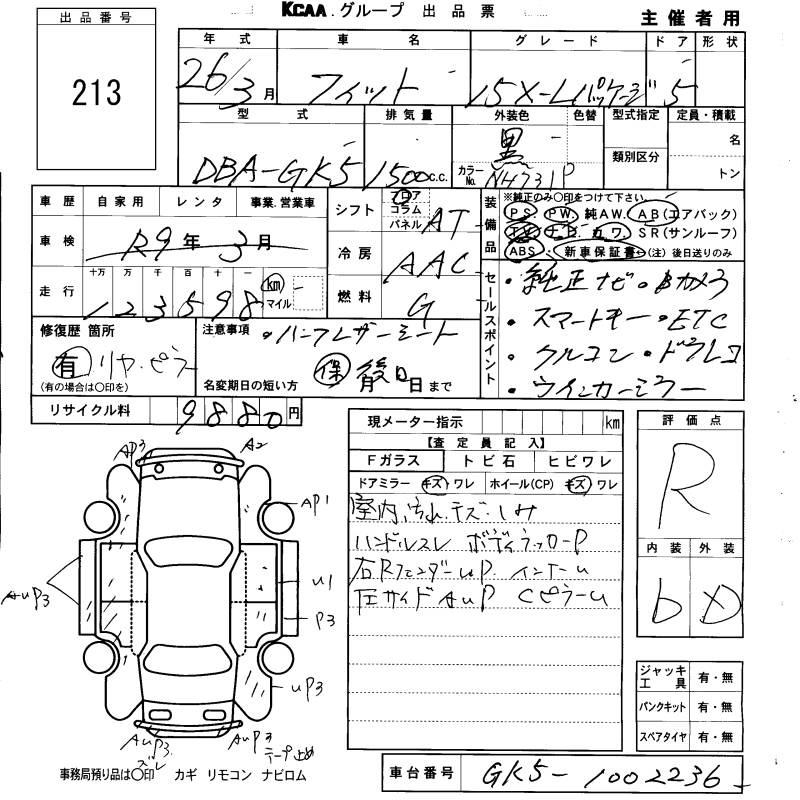 KCAA.グループ 出品票
主催者用
出品番号
213
年式 車名 グレード ドア 形状
26/3月 フィット 15X-Lパッケージ 5
型式 排気量 外装色 色替 型式指定 定員・積載
DBA-GK5 1500c.c. 黒 カラーNo. NH731P 類別区分 名
トン
車歴 自家用 レンタ 事業.営業車
車検 R9年3月
走行 十万 万 千 百 十 一
123598 km マイル
シフト フロア コラム パネル AT
冷房 AAC
燃料 G
装備品
※純正のみ○印をつけて下さい。
PS. PW. 純AW. AB(エアバック)
TV. ナビ. カワ. SR(サンルーフ)
ABS. 新車保証書←(注)後日送りのみ
セールスポイント
・純正ナビ・Bカメラ
・スマートキー・ETC
・クルコン・ドラレコ
・ウインカーミラー
修復歴 箇所
有 リヤ.ピラー
(有の場合は○印を)
注意事項 ・ハーフレザーシート
保 後日
名変期日の短い方 月 日まで
リサイクル料 9880円
現メーター指示 km
【査定員記入】
Fガラス トビ石 ヒビワレ
ドアミラー キズ・ワレ ホイール(CP) キズ・ワレ
室内、汚れ.キズ.しみ
ハンドルスレ ボディラッカーP
右RフェンダーuP. インナーu
左サイドAuP CピラーU
評価点
R
内装 外装
b D
ジャッキ工具 有・無
パンクキット 有・無
スペアタイヤ 有・無
車台番号 GK5-1002236
AP3 A2
AP1
AuP3
U1
P3
uP3
AuP3 ズレ
AuP3 テープ止め
事務局預り品は○印 カギ リモコン ナビロム